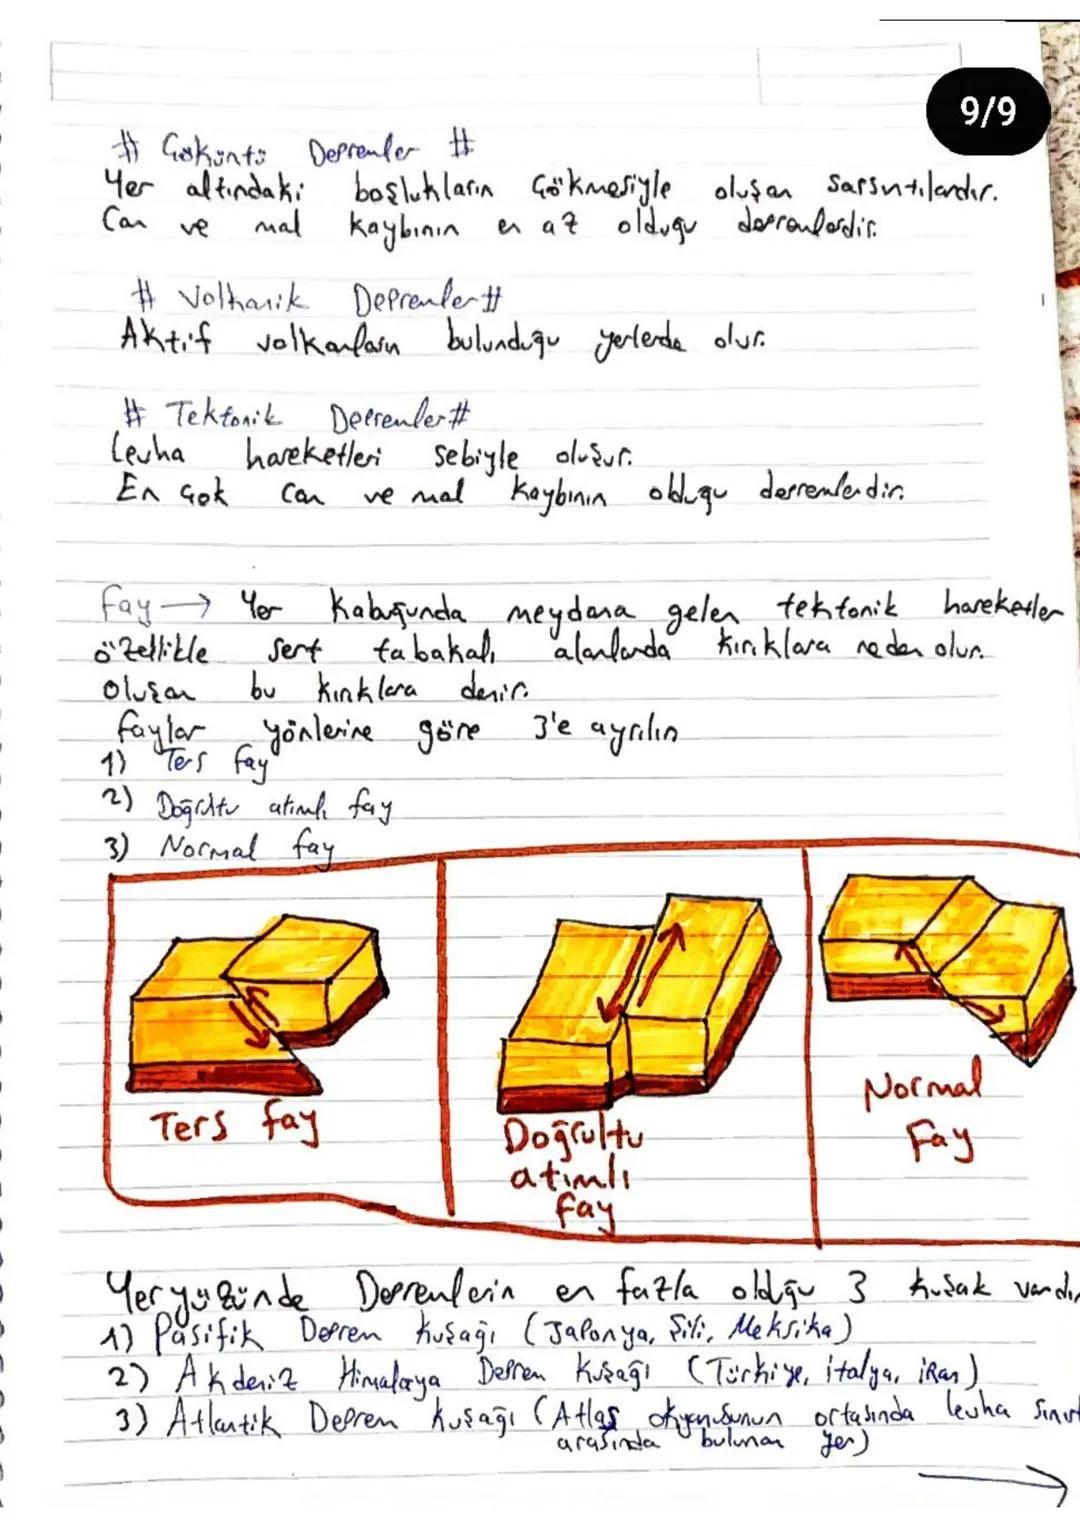 9/9
# Çöküntü Depremler #
Yer altındaki boşlukların Çökmesiyle oluşan sarsıntılardır.
Can ve mal kaybının en az olduğu depremlerdir.
# Volkanik Depremler #
Aktif volkanların bulunduğu yerlerde olur.
# Tektonik Depremler #
Levha hareketleri sebiyle oluşur.
En çok can ve mal kaybının olduğu depremlerdir.
Fay → Yer Kabuğunda meydana gelen tektonik hareketler
özellikle sert tabakalı alanlarda kırıklara neden olur.
Oluşan bu kırıklara denir.
faylar yönlerine göre 3'e ayrılır
1) Ters fay
2) Doğrultu atımlı fay
3) Normal fay
Ters fay
Doğrultu
atımlı
fay
Normal
Fay
Yeryüzünde Depremlerin en fazla olduğu 3 kuşak vardır
1) Pasifik Deprem kuşağı (Japonya, Şili, Meksika)
2) Akdeniz Himalaya Deprem Kuşağı (Türkiye, italya, iran)
3) Atlantik Deprem Kuşağı (Atlas okyanusunun ortasında levha sınırı
arasında bulunan yer)